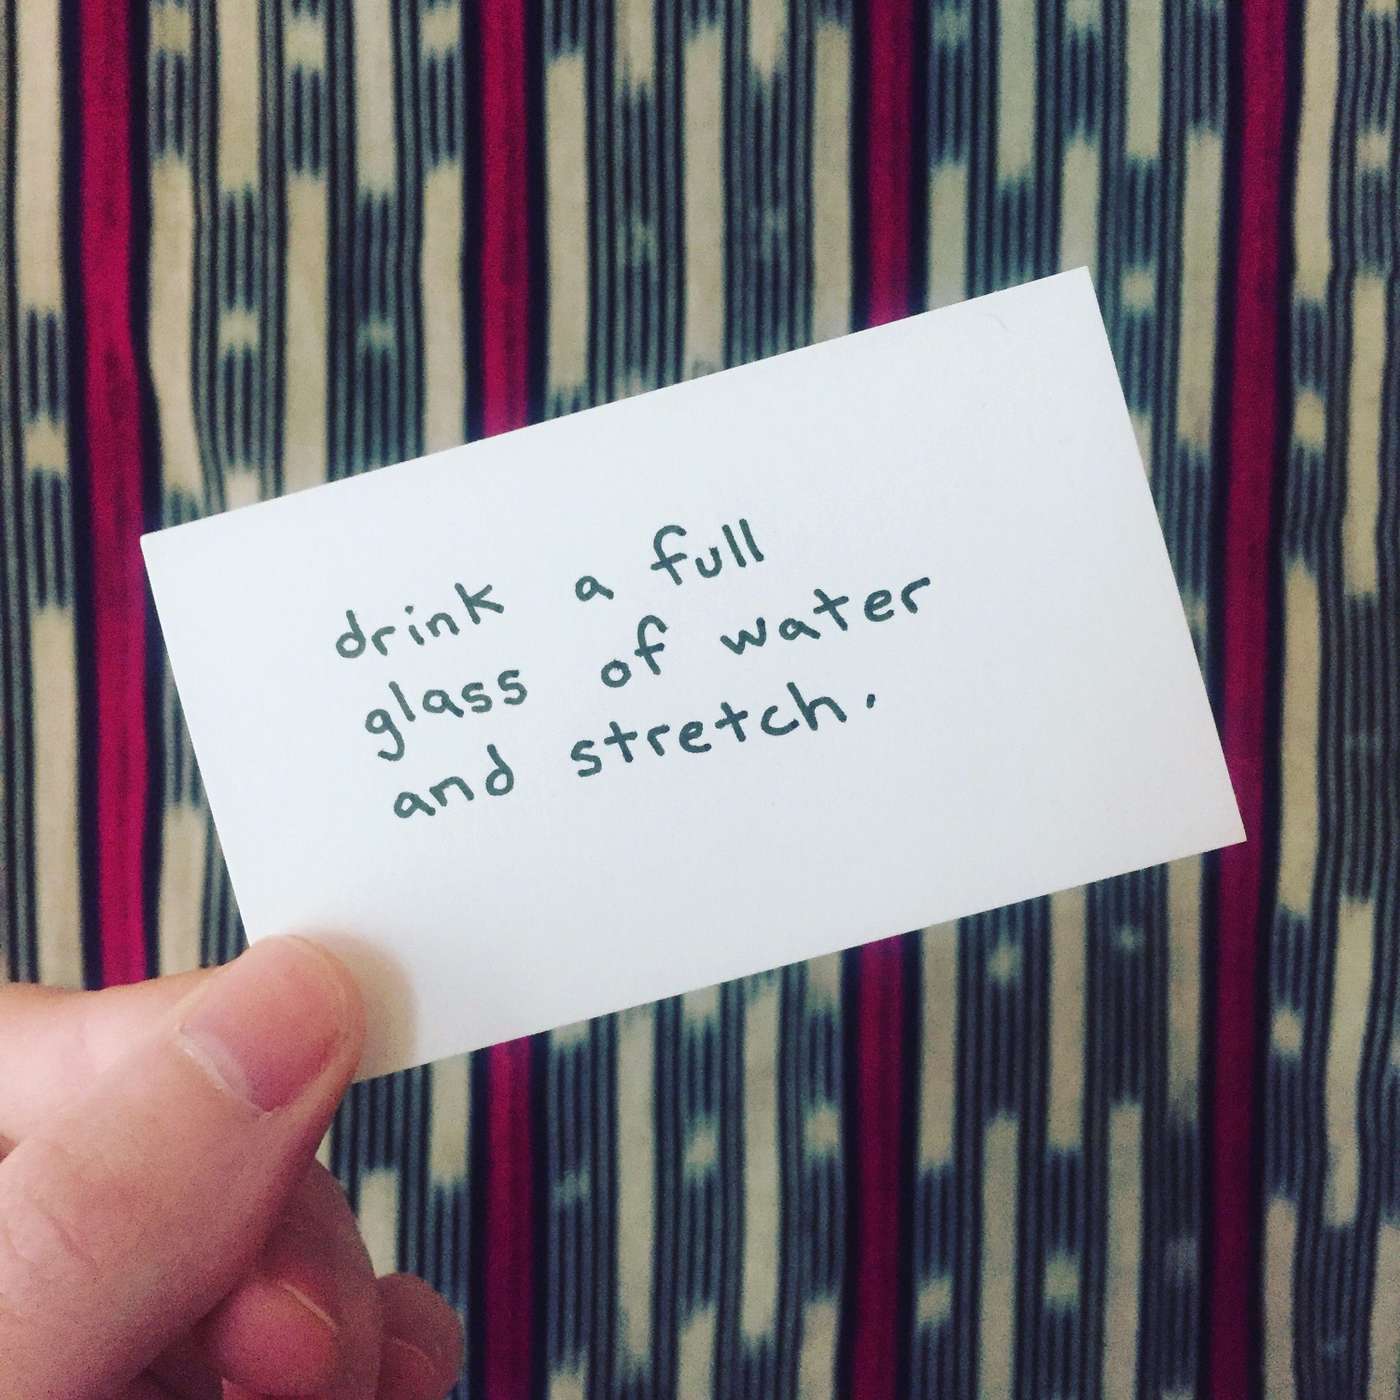 drink a full
glass of water
and stretch.